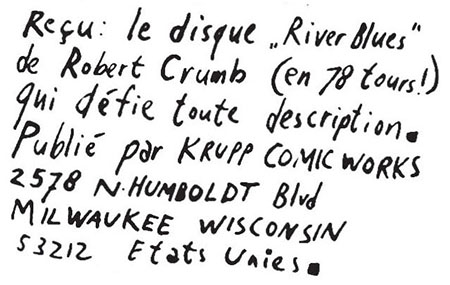 Reçu: le disque „River Blues"
de Robert Crumb (en 78 tours!)
qui défie toute description.
Publié par KRUPP COMIC WORKS
2578 N. HUMBOLDT Blvd
MILWAUKEE WISCONSIN
53212 Etats Unies.